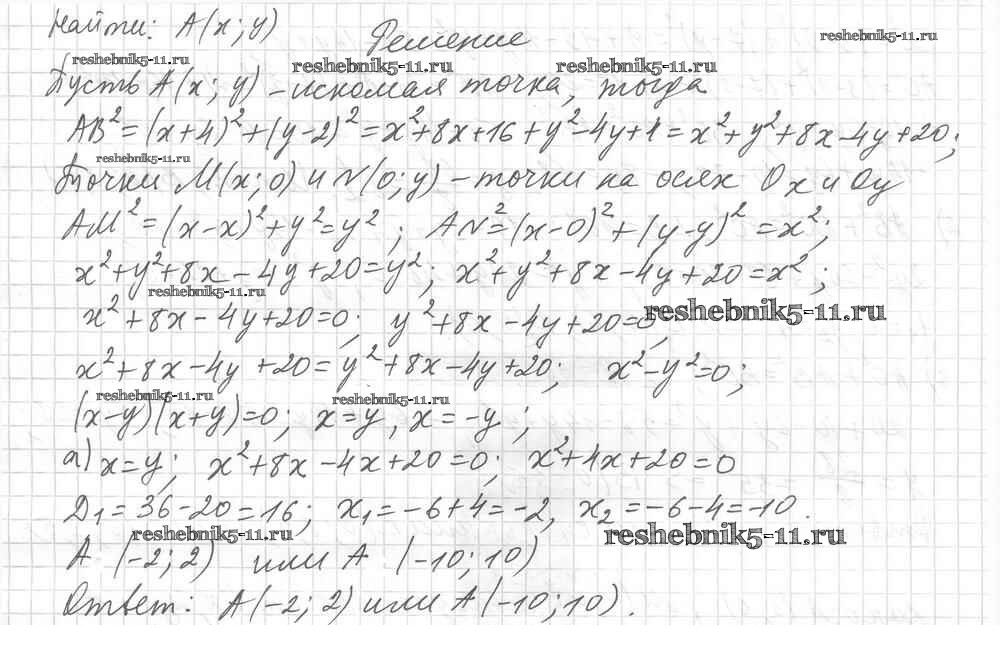 Найти: A(x; y)
Решение
reshebnik5-11.ru
reshebnik5-11.ru
reshebnik5-11.ru
reshebnik5-11.ru
Пусть A(x; y) – искомая точка, тогда
AB² = (x+4)² + (y-2)² = x²+8x+16+y²-4y+4 = x²+y²+8x-4y+20;
reshebnik5-11.ru
Точки M(x; 0) и N(0; y) – точки на осях Ox и Oy
AM² = (x-x)²+y² = y²; AN² = (x-0)²+(y-y)² = x²;
x²+y²+8x-4y+20=y²; x²+y²+8x-4y+20=x²;
reshebnik5-11.ru
reshebnik5-11.ru
x²+8x-4y+20=0; y²+8x-4y+20=0;
x²+8x-4y+20=y²+8x-4y+20; x²-y²=0;
reshebnik5-11.ru
reshebnik5-11.ru
(x-y)(x+y)=0; x=y, x=-y;
а) x=y; x²+8x-4x+20=0; x²+4x+20=0
Д₁=36-20=16; x₁=-6+4=-2, x₂=-6-4=-10.
reshebnik5-11.ru
reshebnik5-11.ru
A (-2; 2) или A (-10; 10)
Ответ: A(-2; 2) или A(-10; 10).